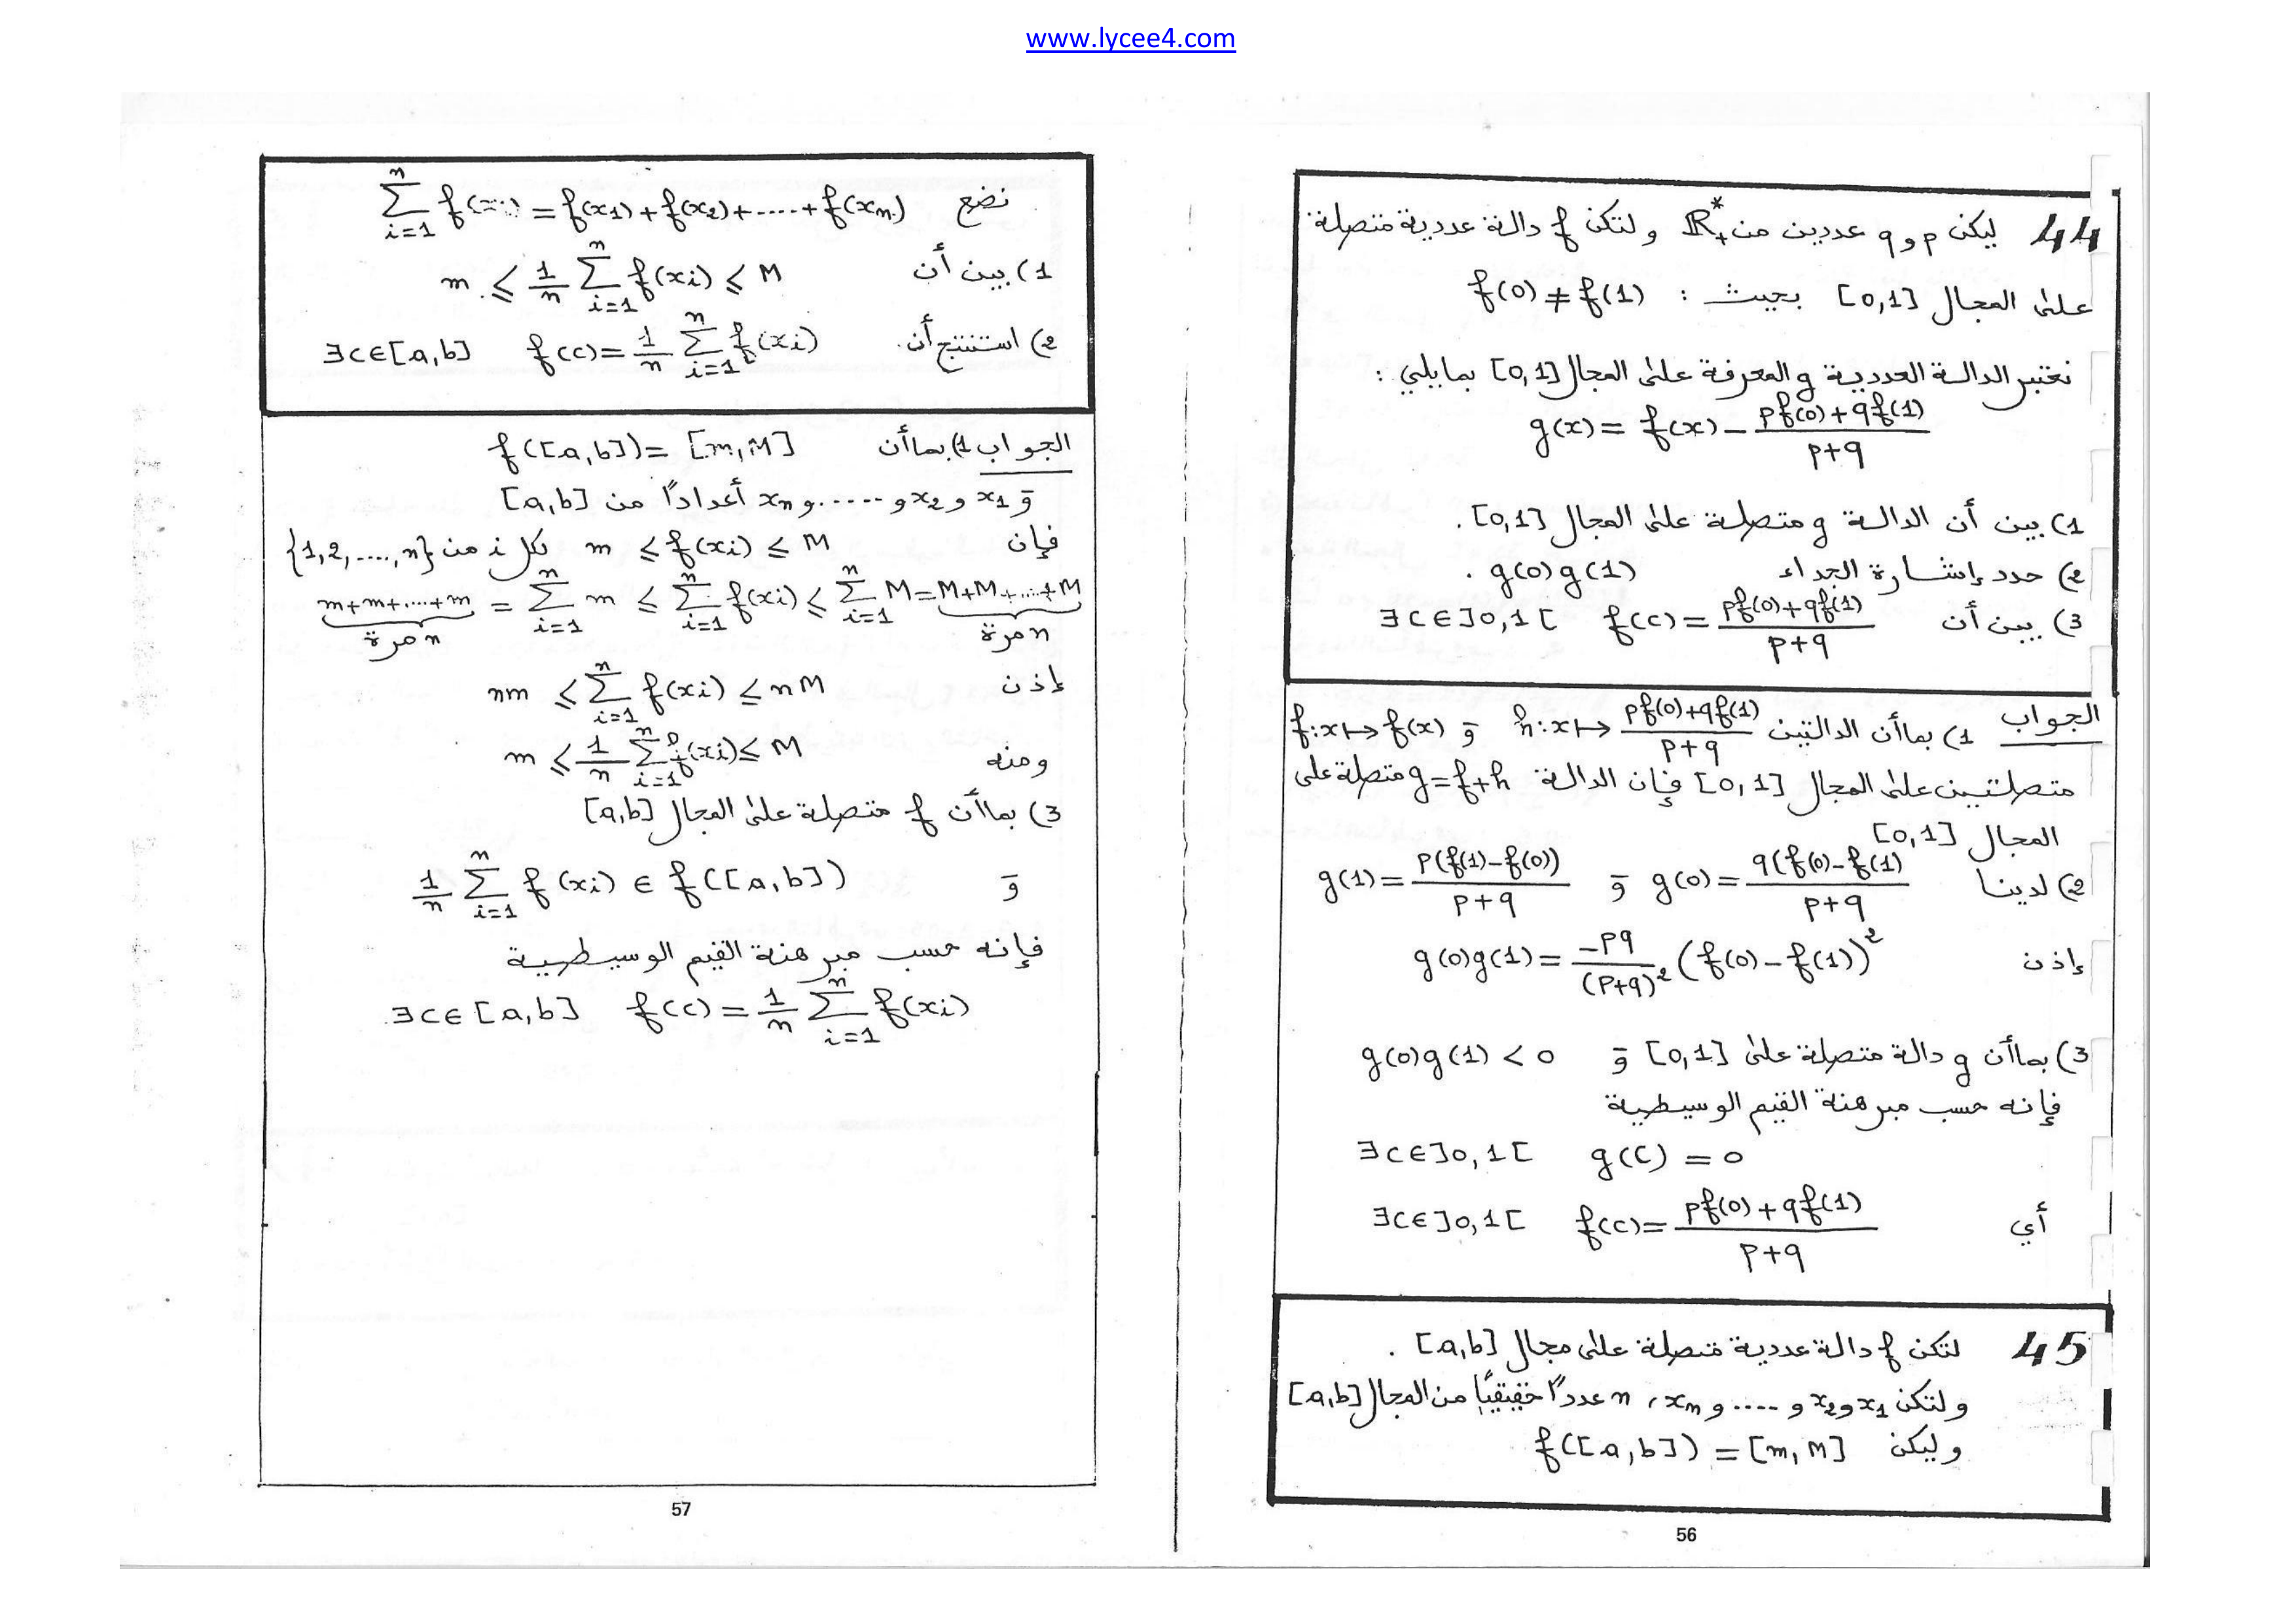 www.lycee4.com
44 ليكن p و q عددين من ℝ₊* ولتكن f دالة عددية متصلة
على المجال [0,1] بحيث : f(0) ≠ f(1)
نعتبر الدالة العددية g والمعرفة على المجال [0,1] بمايلي :
g(x) = f(x) - (pf(0)+qf(1))/(p+q)
1) بين أن الدالة g متصلة على المجال [0,1].
2) حدد إشارة الجداء g(0)g(1) .
3) بين أن ∃c∈]0,1[ f(c) = (pf(0)+qf(1))/(p+q)
الجواب 1) بماأن الدالتين h:x↦(pf(0)+qf(1))/(p+q) و f:x↦f(x)
متصلتين على المجال [0,1] فإن الدالة g=f+h متصلة على
المجال [0,1]
2) لدينا g(0) = q(f(0)-f(1))/(p+q) و g(1) = p(f(1)-f(0))/(p+q)
إذن g(0)g(1) = -pq/(p+q)² (f(0)-f(1))²
3) بماأن g دالة متصلة على [0,1] و g(0)g(1) < 0
فإنه حسب مبرهنة القيم الوسيطية
∃c∈]0,1[ g(c) = 0
أي ∃c∈]0,1[ f(c) = (pf(0)+qf(1))/(p+q)
45 لتكن f دالة عددية متصلة على مجال [a,b] .
ولتكن x₁ و x₂ و .... و xₙ ، n عددًا حقيقيًا من المجال [a,b]
وليكن f([a,b]) = [m,M]
56
نضع ∑ᵢ₌₁ⁿ f(xᵢ) = f(x₁)+f(x₂)+.....+f(xₙ)
1) بين أن m ≤ 1/n ∑ᵢ₌₁ⁿ f(xi) ≤ M
2) استنتج أن. ∃c∈[a,b] f(c) = 1/n ∑ᵢ₌₁ⁿ f(xi)
الجواب 1) بماأن f([a,b]) = [m,M]
و x₁ و x₂ و ..... و xₙ أعدادًا من [a,b]
فإن m ≤ f(xi) ≤ M لكل i من {1,2,....,n}
m+m+....+m = ∑ᵢ₌₁ⁿ m ≤ ∑ᵢ₌₁ⁿ f(xi) ≤ ∑ᵢ₌₁ⁿ M = M+M+....+M
n مرة n مرة
إذن nm ≤ ∑ᵢ₌₁ⁿ f(xi) ≤ nM
ومنه m ≤ 1/n ∑ᵢ₌₁ⁿ f(xi) ≤ M
3) بماأن f متصلة على المجال [a,b]
و 1/n ∑ᵢ₌₁ⁿ f(xi) ∈ f([a,b])
فإنه حسب مبرهنة القيم الوسيطية
∃c∈[a,b] f(c) = 1/n ∑ᵢ₌₁ⁿ f(xi)
57